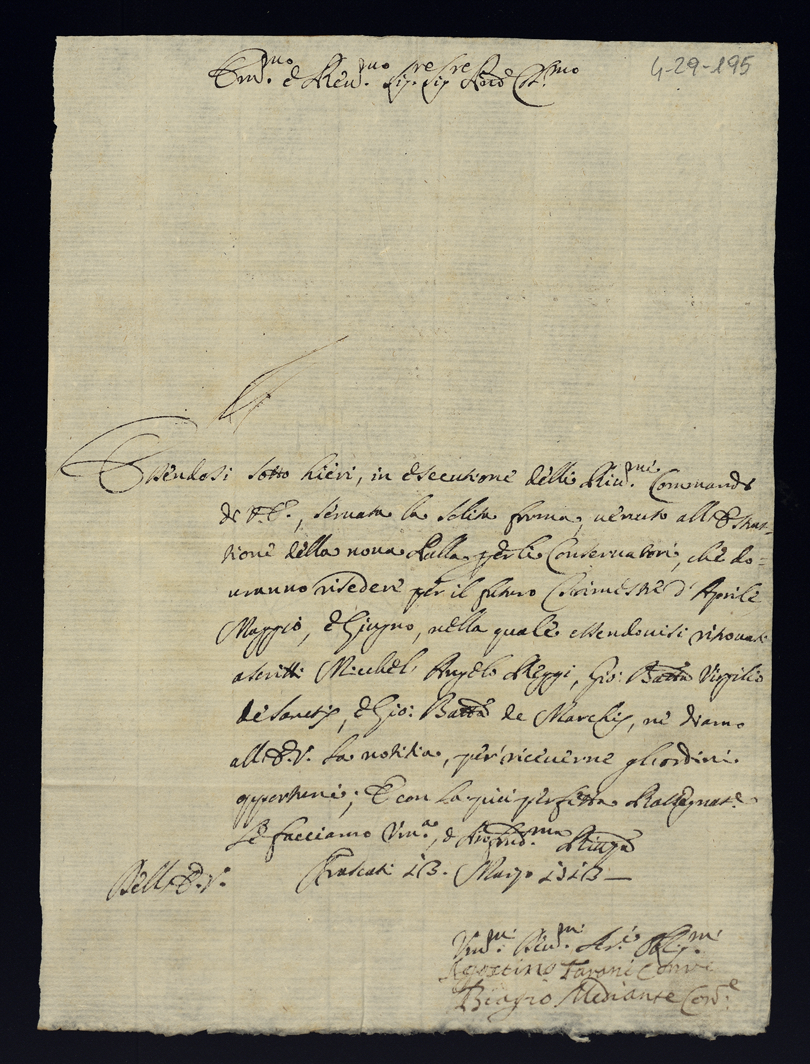 Em.mo e Reu.mo Sig.re Sig.re Pad.e Col.mo
4-29-195
Essendosi sotto hieri, in esecutione delli Riu.mi Commandi
di V. E., seruata la solita forma, uenuto all'Estrat-
tione della noua Palla per li Conservatori, che do-
uranno risedere per il futuro Trimestre d'Aprile
Maggio, e Giugno, nella quale essendouisi ritrouati
ascritti Michel' Angelo Reggi, Gio: Batta Virgilio
de Sanctis, e Gio: Batta de Marchis, ne diamo
all'E.V. la notitia, per riceuerne gl'ordini
opportuni; E con la più perfetta Rassegnat.e
Le facciamo Um.a, e Profond.ma Riu.za
Dell'E.V. Frascati 13. Marzo 1713
Um.mi Diu.mi Ser.i Obl.mi
Agostino Conre
Biagio Mediante Con.re